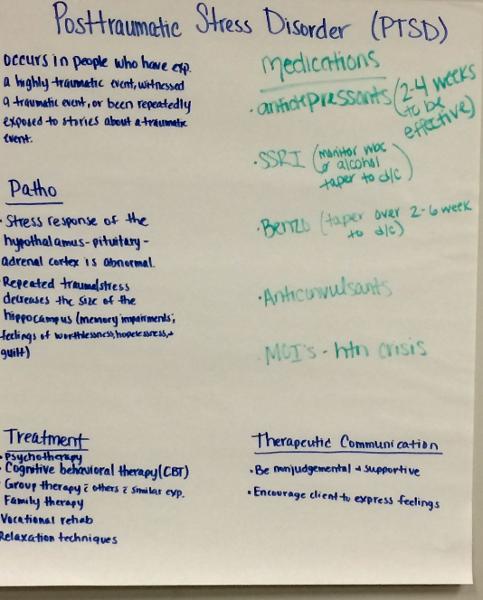 Posttraumatic Stress Disorder (PTSD)
occurs in people who have exp.
a highly traumatic event, witnessed
a traumatic event, or been repeatedly
exposed to stories about a traumatic
event.
Patho
• Stress response of the
hypothalamus-pituitary-
adrenal cortex is abnormal.
• Repeated trauma/stress
decreases the size of the
hippocampus (memory impairments,
feelings of worthlessness, hopelessness, +
guilt)
Treatment
• Psychotherapy
• Cognitive behavioral therapy (CBT)
• Group therapy c̄ others c̄ similar exp.
Family therapy
Vocational rehab
Relaxation techniques
Medications
• antidepressants (2-4 weeks
to be
effective)
• SSRI (monitor wbc
or alcohol
taper to d/c)
• Benzo (taper over 2-6 week
to d/c)
• Anticonvulsants
• MOI's - htn crisis
Therapeutic Communication
• Be nonjudgemental + supportive
• Encourage client to express feelings